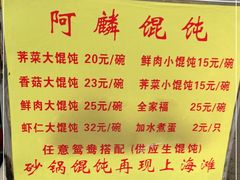 阿麟馄饨
荠菜大馄饨 20元/碗 鲜肉小馄饨15元/碗
香菇大馄饨 23元/碗 荠菜小馄饨15元/碗
鲜肉大馄饨 25元/碗 全家福 25元/碗
虾仁大馄饨 32元/碗 加水煮蛋 2元/只
任意鸳鸯搭配 (供应生馄饨)
砂锅馄饨再现上海滩